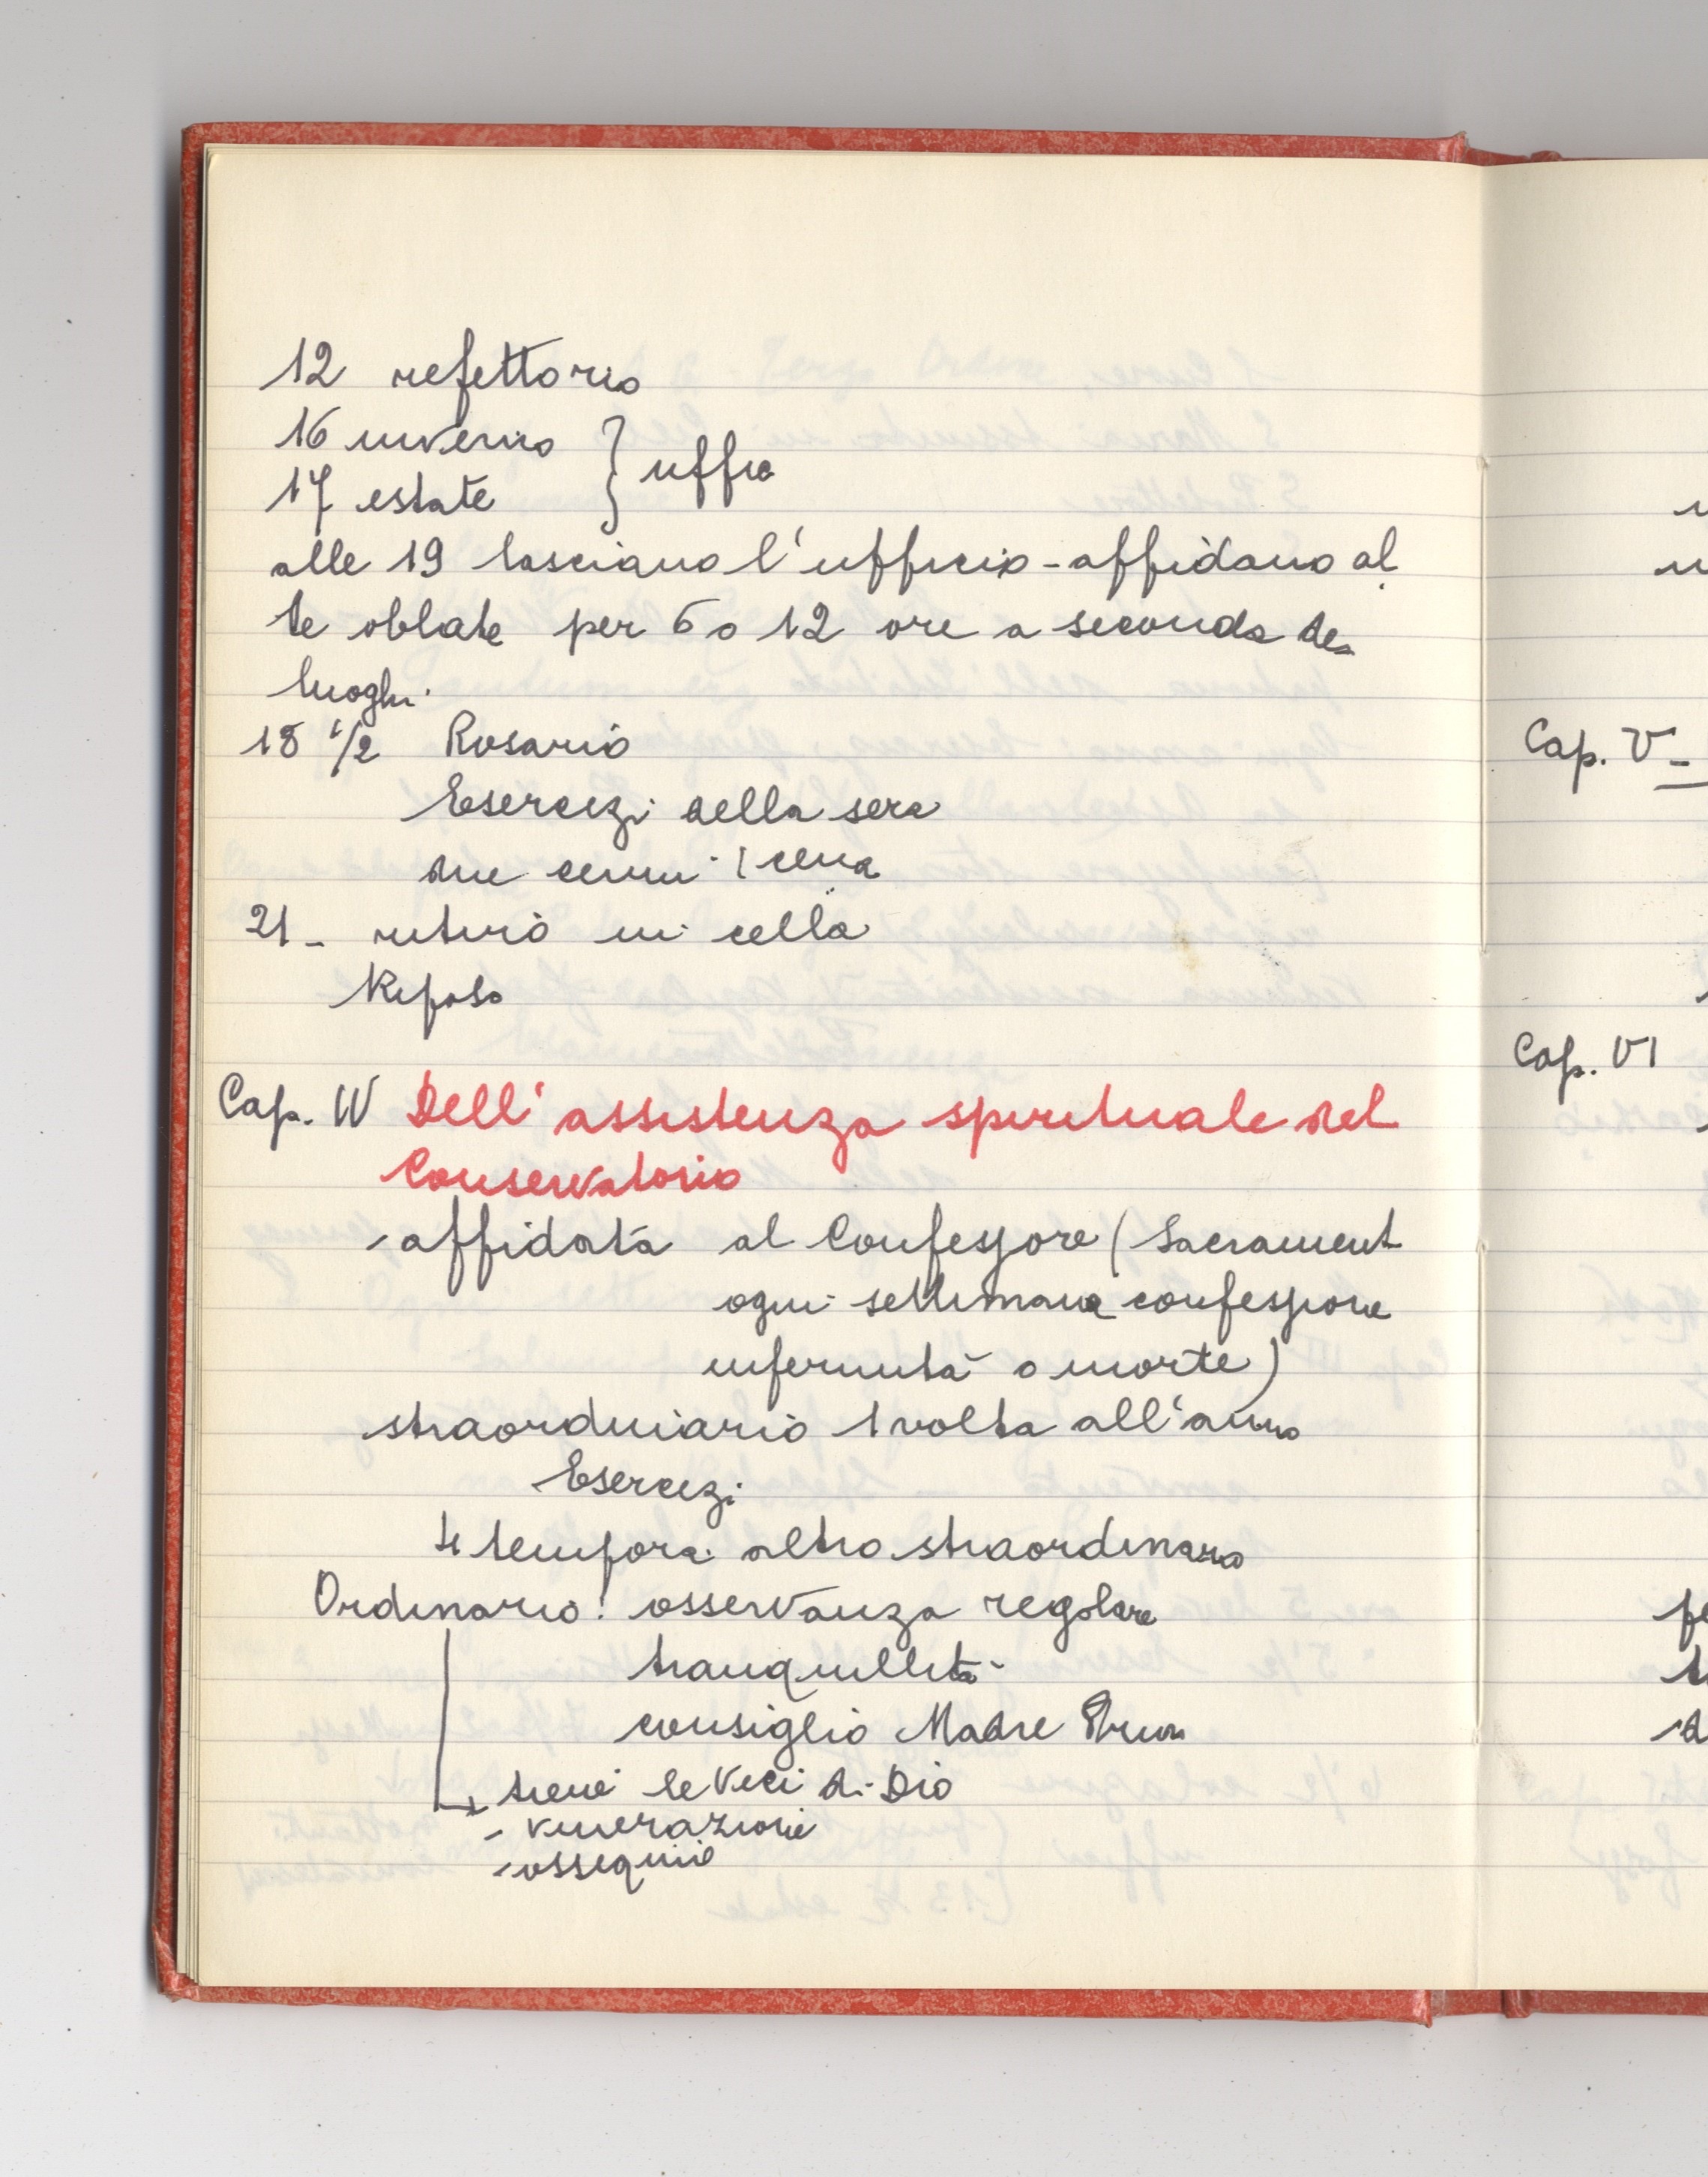 12 refettorio
16 inverno
17 estate } uffic
alle 19 lasciano l'ufficio - affidano al
te oblate per 6 o 12 ore a seconda dei
luoghi.
18 1/2 Rosario
Esercizi della sera
due cenni: cena
21 - ritiro in cella
Riposo
Cap. IV Dell'assistenza spirituale del
Conservatorio
- affidata al Confessore (Sacrament
ogni settimana confessione
infermità o morte)
straordinario 1 volta all'anno
Esercizi
4 tempora: altro straordinario
Ordinario: osservanza regolare
tranquillità
consiglio Madre
tiene le veci di Dio
- venerazione
- ossequio
Cap. V -
Cap. VI